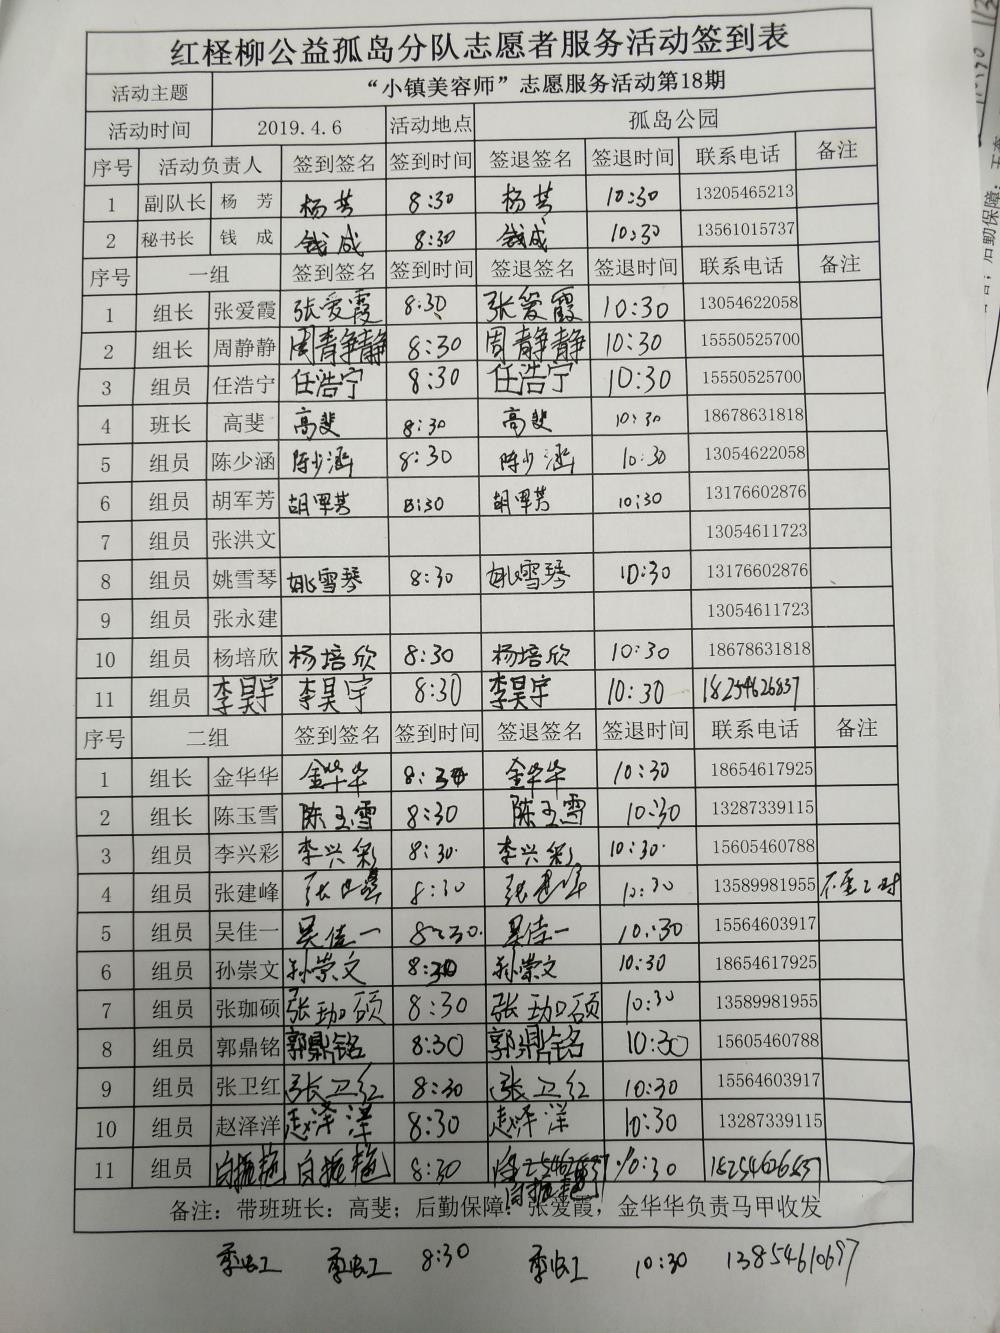 红柽柳公益孤岛分队志愿者服务活动签到表
活动主题 “小镇美容师”志愿服务活动第18期
活动时间 2019.4.6 活动地点 孤岛公园
序号 活动负责人 签到签名 签到时间 签退签名 签退时间 联系电话 备注
1 副队长 杨 芳 杨芳 8:30 杨芳 10:30 13205465213
2 秘书长 钱 成 钱成 8:30 钱成 10:30 13561015737
序号 一组 签到签名 签到时间 签退签名 签退时间 联系电话 备注
1 组长 张爱霞 张爱霞 8:30 张爱霞 10:30 13054622058
2 组长 周静静 周静静 8:30 周静静 10:30 15550525700
3 组员 任浩宁 任浩宁 8:30 任浩宁 10:30 15550525700
4 班长 高斐 高斐 8:30 高斐 10:30 18678631818
5 组员 陈少涵 陈少涵 8:30 陈少涵 10:30 13054622058
6 组员 胡军芳 胡军芳 8:30 胡军芳 10:30 13176602876
7 组员 张洪文 13054611723
8 组员 姚雪琴 姚雪琴 8:30 姚雪琴 10:30 13176602876
9 组员 张永建 13054611723
10 组员 杨培欣 杨培欣 8:30 杨培欣 10:30 18678631818
11 组员 李昊宇 李昊宇 8:30 李昊宇 10:30 18254626837
序号 二组 签到签名 签到时间 签退签名 签退时间 联系电话 备注
1 组长 金华华 金华华 8:30 金华华 10:30 18654617925
2 组长 陈玉雪 陈玉雪 8:30 陈玉雪 10:30 13287339115
3 组员 李兴彩 李兴彩 8:30 李兴彩 10:30 15605460788
4 组员 张建峰 张建峰 8:30 张建峰 10:30 13589981955
5 组员 吴佳一 吴佳一 8:30 吴佳一 10:30 15564603917
6 组员 孙崇文 孙崇文 8:30 孙崇文 10:30 18654617925
7 组员 张珈硕 张珈硕 8:30 张珈硕 10:30 13589981955
8 组员 郭鼎铭 郭鼎铭 8:30 郭鼎铭 10:30 15605460788
9 组员 张卫红 张卫红 8:30 张卫红 10:30 15564603917
10 组员 赵泽洋 赵泽洋 8:30 赵泽洋 10:30 13287339115
11 组员 8:30 10:30 18254626837
备注：带班班长：高斐；后勤保障：张爱霞，金华华负责马甲收发
8:30 10:30 13854610697